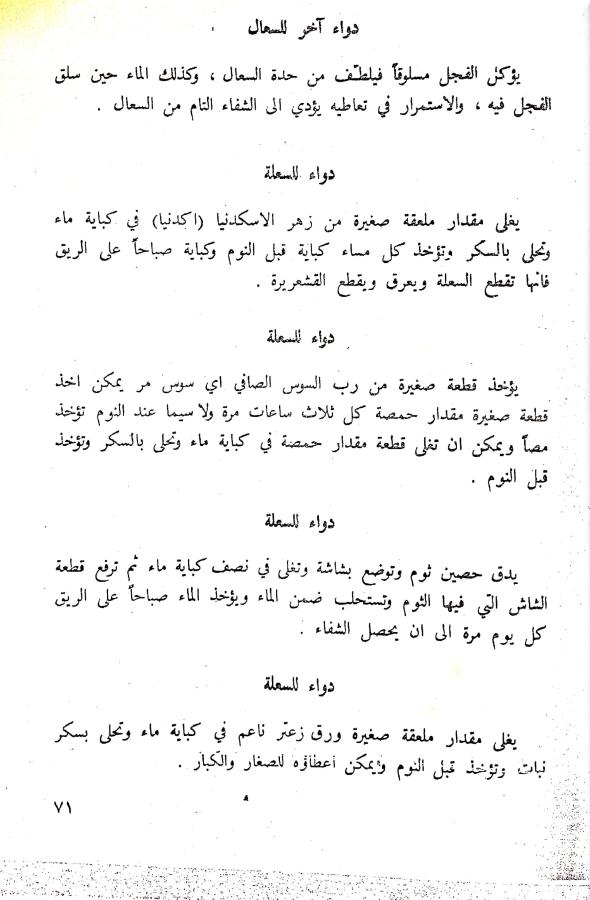 دواء آخر للسعال
يؤكل الفجل مسلوقاً فيلطّف من حدة السعال ، وكذلك الماء حين سلق
الفجل فيه ، والاستمرار في تعاطيه يؤدي الى الشفاء التام من السعال .
دواء للسعلة
يغلى مقدار ملعقة صغيرة من زهر الاسكدنيا (اكدنيا) في كباية ماء
وتحلى بالسكّر وتؤخذ كل مساء كباية قبل النوم وكباية صباحاً على الريق
فانها تقطع السعلة ويعرق ويقطع القشعريرة .
دواء للسعلة
يؤخذ قطعة صغيرة من رب السوس الصافي اي سوس مر يمكن اخذ
قطعة صغيرة مقدار حمصة كل ثلاث ساعات مرة ولا سيما عند النوم تؤخذ
مصاً ويمكن ان تغلى قطعة مقدار حمصة في كباية ماء وتحلى بالسكر وتؤخذ
قبل النوم .
دواء للسعلة
يدق حصين ثوم وتوضع بشاشة وتغلى في نصف كباية ماء ثم ترفع قطعة
الشاش التي فيها الثوم وتستحلب ضمن الماء ويؤخذ الماء صباحاً على الريق
كل يوم مرة الى ان يحصل الشفاء .
دواء للسعلة
يغلى مقدار ملعقة صغيرة ورق زعتر ناعم في كباية ماء وتحلى بسكر
نبات وتؤخذ قبل النوم ويمكن اعطاؤه للصغار والكبار .
٧١